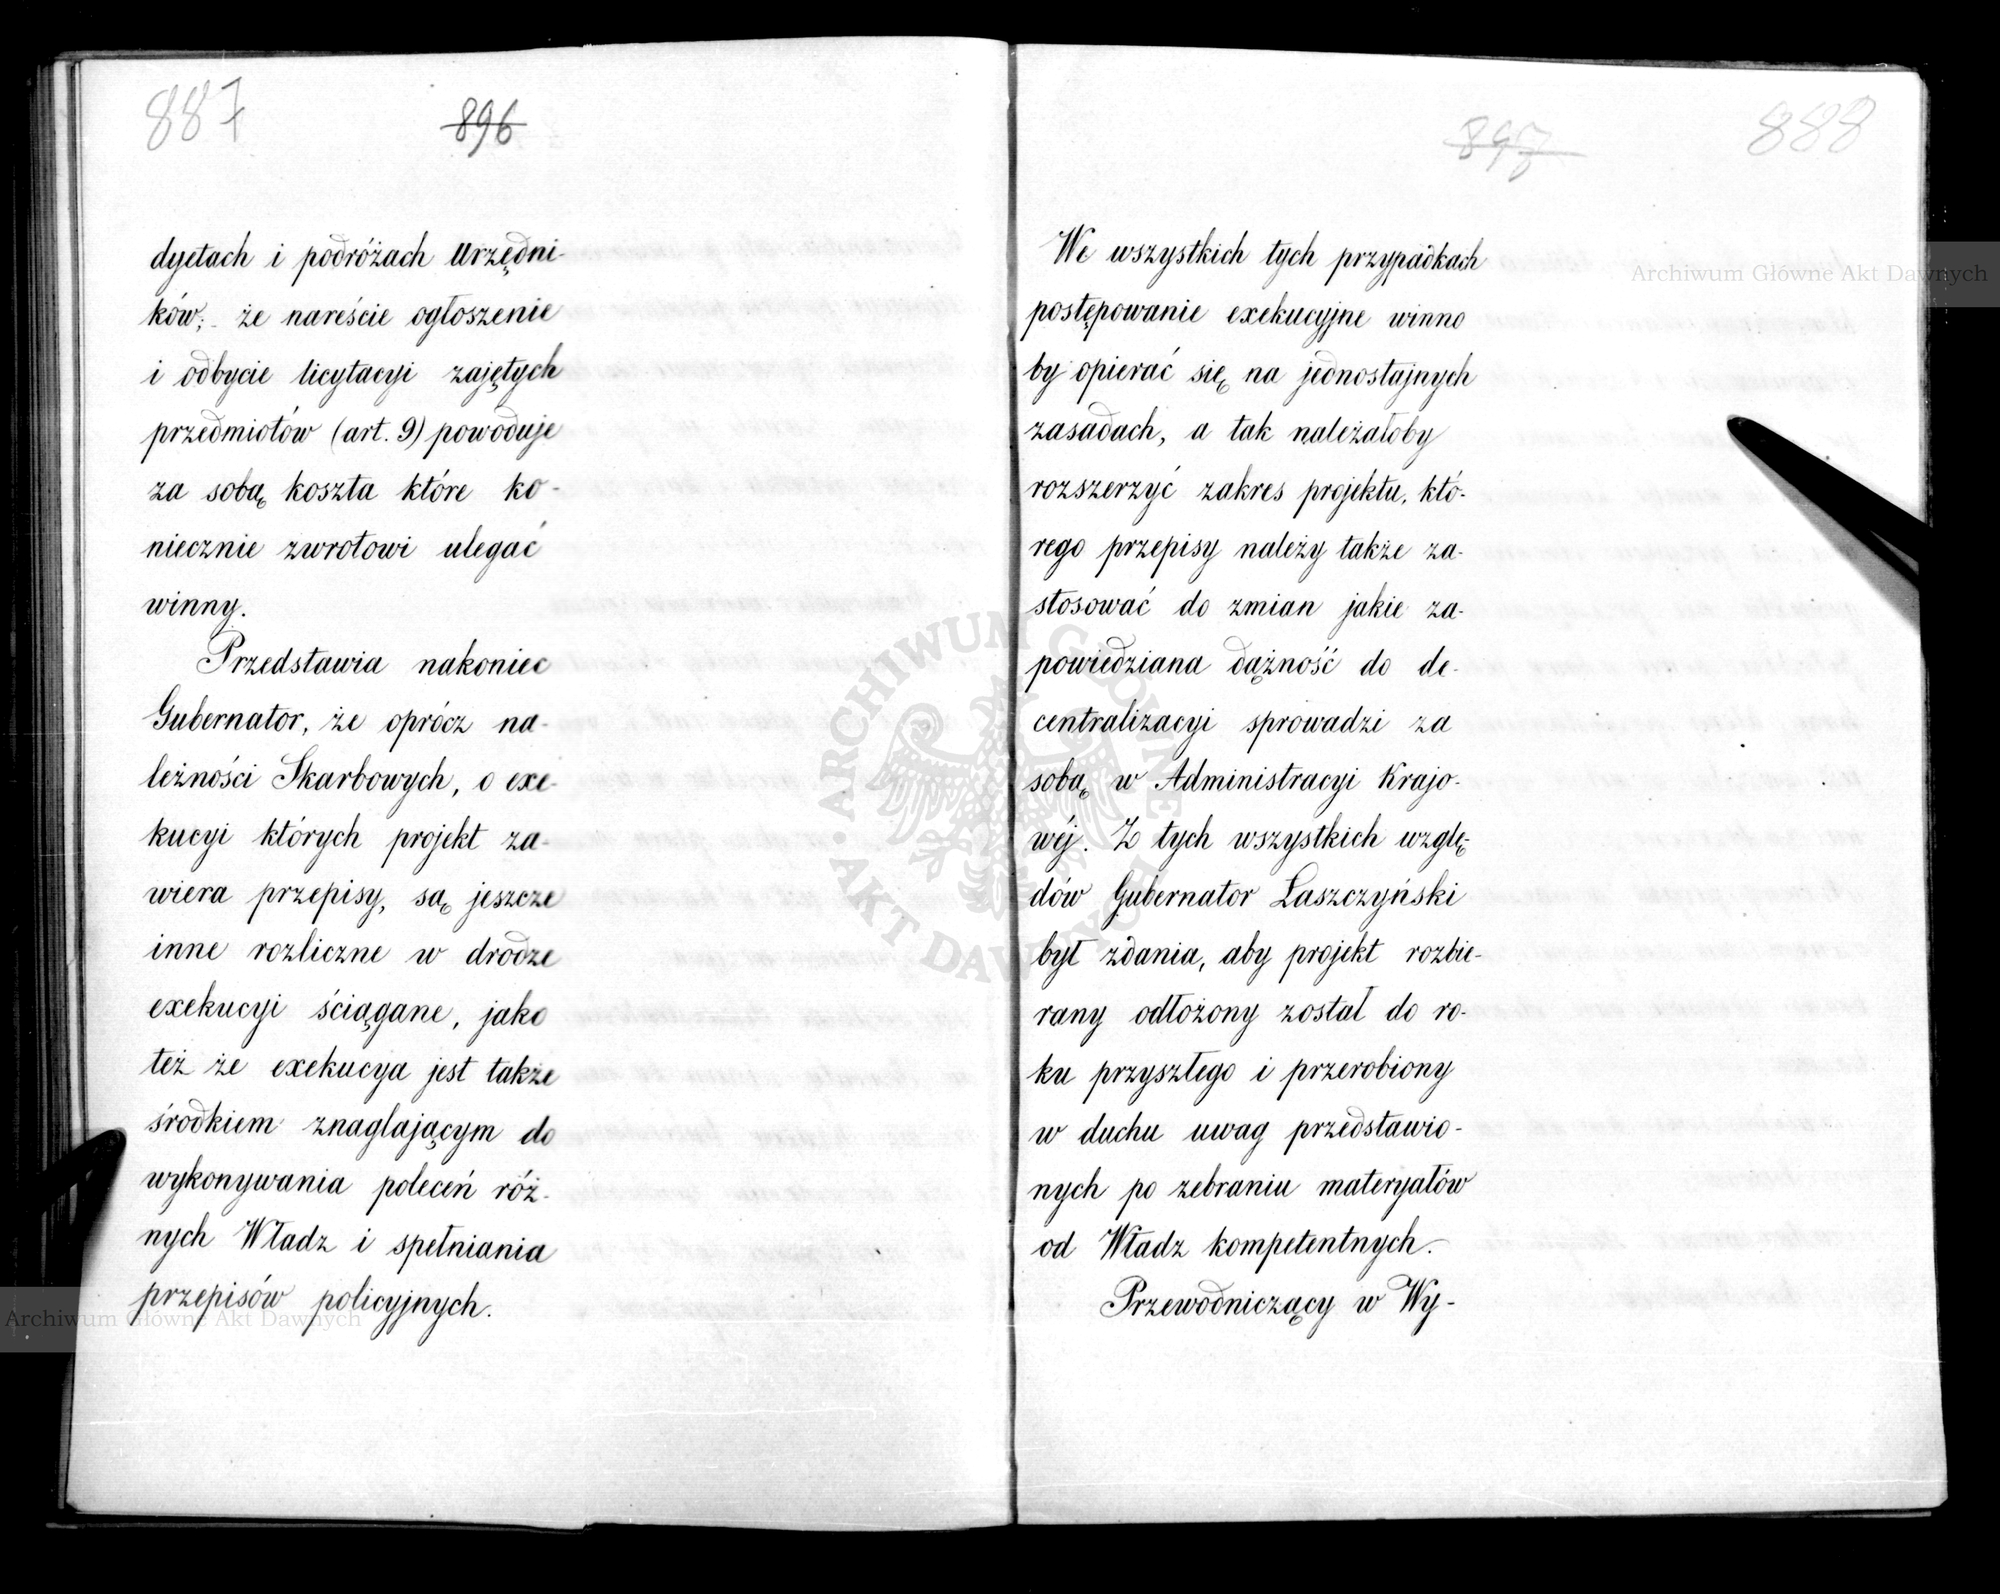 887
896
dyetach i podróżach Urzędni-
ków; że nareście ogłoszenie
i odbycie licytacyi zajętych
przedmiotów (art. 9) powoduje
za sobą koszta które ko-
niecznie zwrotowi ulegać
winny.
Przedstawia nakoniec
Gubernator, że oprócz na-
leżności Skarbowych, o exe-
kucyi których projekt za-
wiera przepisy, są jeszcze
inne rozliczne w drodze
exekucyi ściągane, jako
też że exekucya jest także
środkiem znaglającym do
wykonywania poleceń róż-
nych Władz i spełniania
przepisów policyjnych.
888
We wszystkich tych przypadkach
postępowanie exekucyjne winno
by opierać się na jednostajnych
zasadach, a tak należałoby
rozszerzyć zakres projektu, któ-
rego przepisy należy także za-
stosować do zmian jakie za-
powiedziana dążność do de-
centralizacyi sprowadzi za
sobą w Administracyi Krajo-
wéj. Z tych wszystkich wzglę-
dów Gubernator Łaszczyński
był zdania, aby projekt rozbie-
rany odłożony został do ro-
ku przyszłego i przerobiony
w duchu uwag przedstawio-
nych po zebraniu materyałów
od Władz kompetentnych.
Przewodniczący w Wy-
Archiwum Główne Akt Dawnych
Archiwum Główne Akt Dawnych
ARCHIWUM GŁÓWNE AKT DAWNYCH